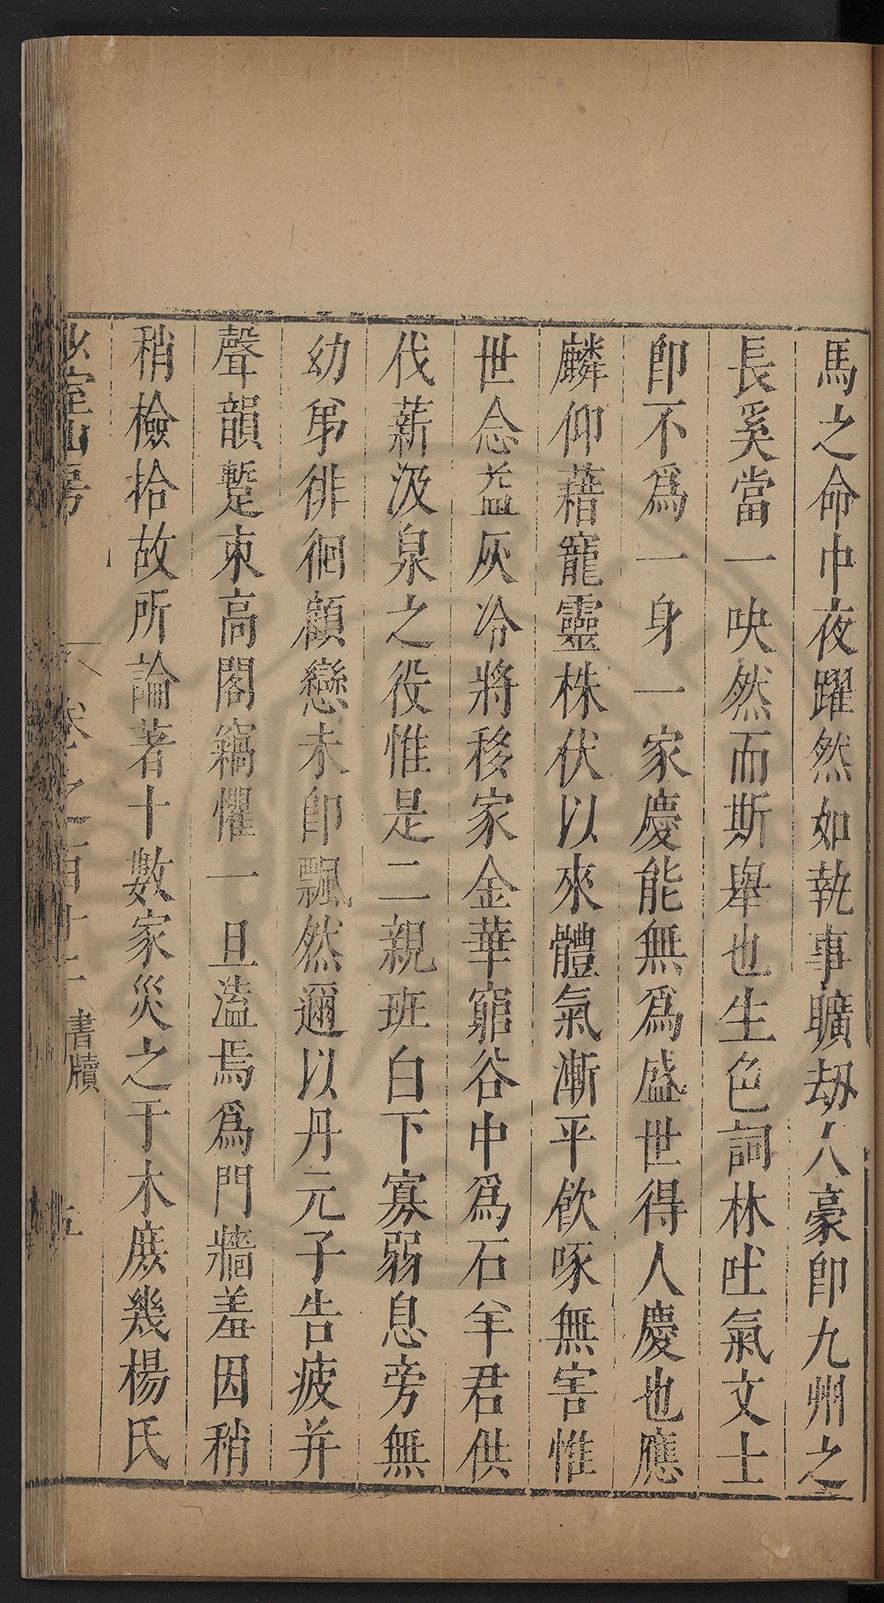 馬之命中夜躍然如執事曠劫人豪卽九州之
長奚當一吷然而斯舉也生色詞林吐氣文士
卽不爲一身一家慶能無爲盛世得人慶也應
麟仰藉寵靈株伏以來體氣漸平飲啄無害惟
世念益灰冷將移家金華窮谷中爲石羊君供
伐薪汲泉之役惟是二親班白下寡弱息旁無
幼弟徘徊顧戀未卽飄然邇以丹元子告疲并
聲韻蹔束高閣竊懼一旦溘焉爲門牆羞因稍
稍檢拾故所論著十數家災之于木庶幾楊氏
少室山房 卷之百廿 書牘 五